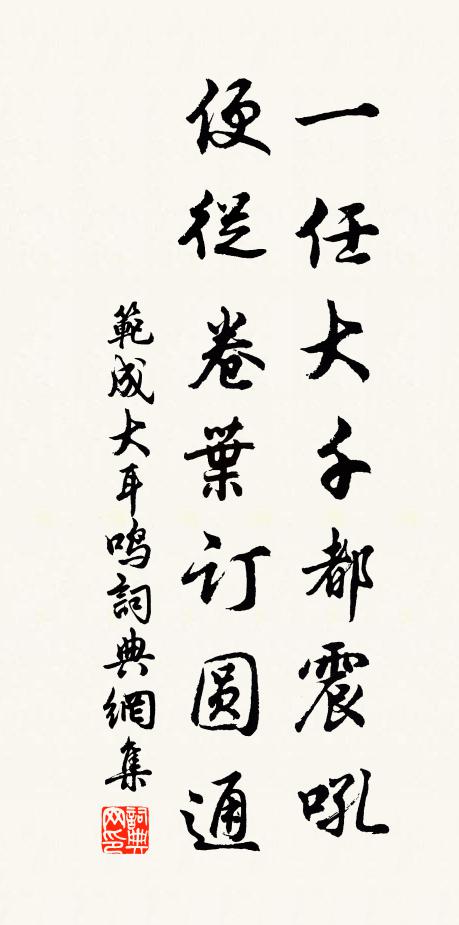 一任大千都震吼
便從卷葉订圆通
範成大耳鸣詞典網集
詞典
网印